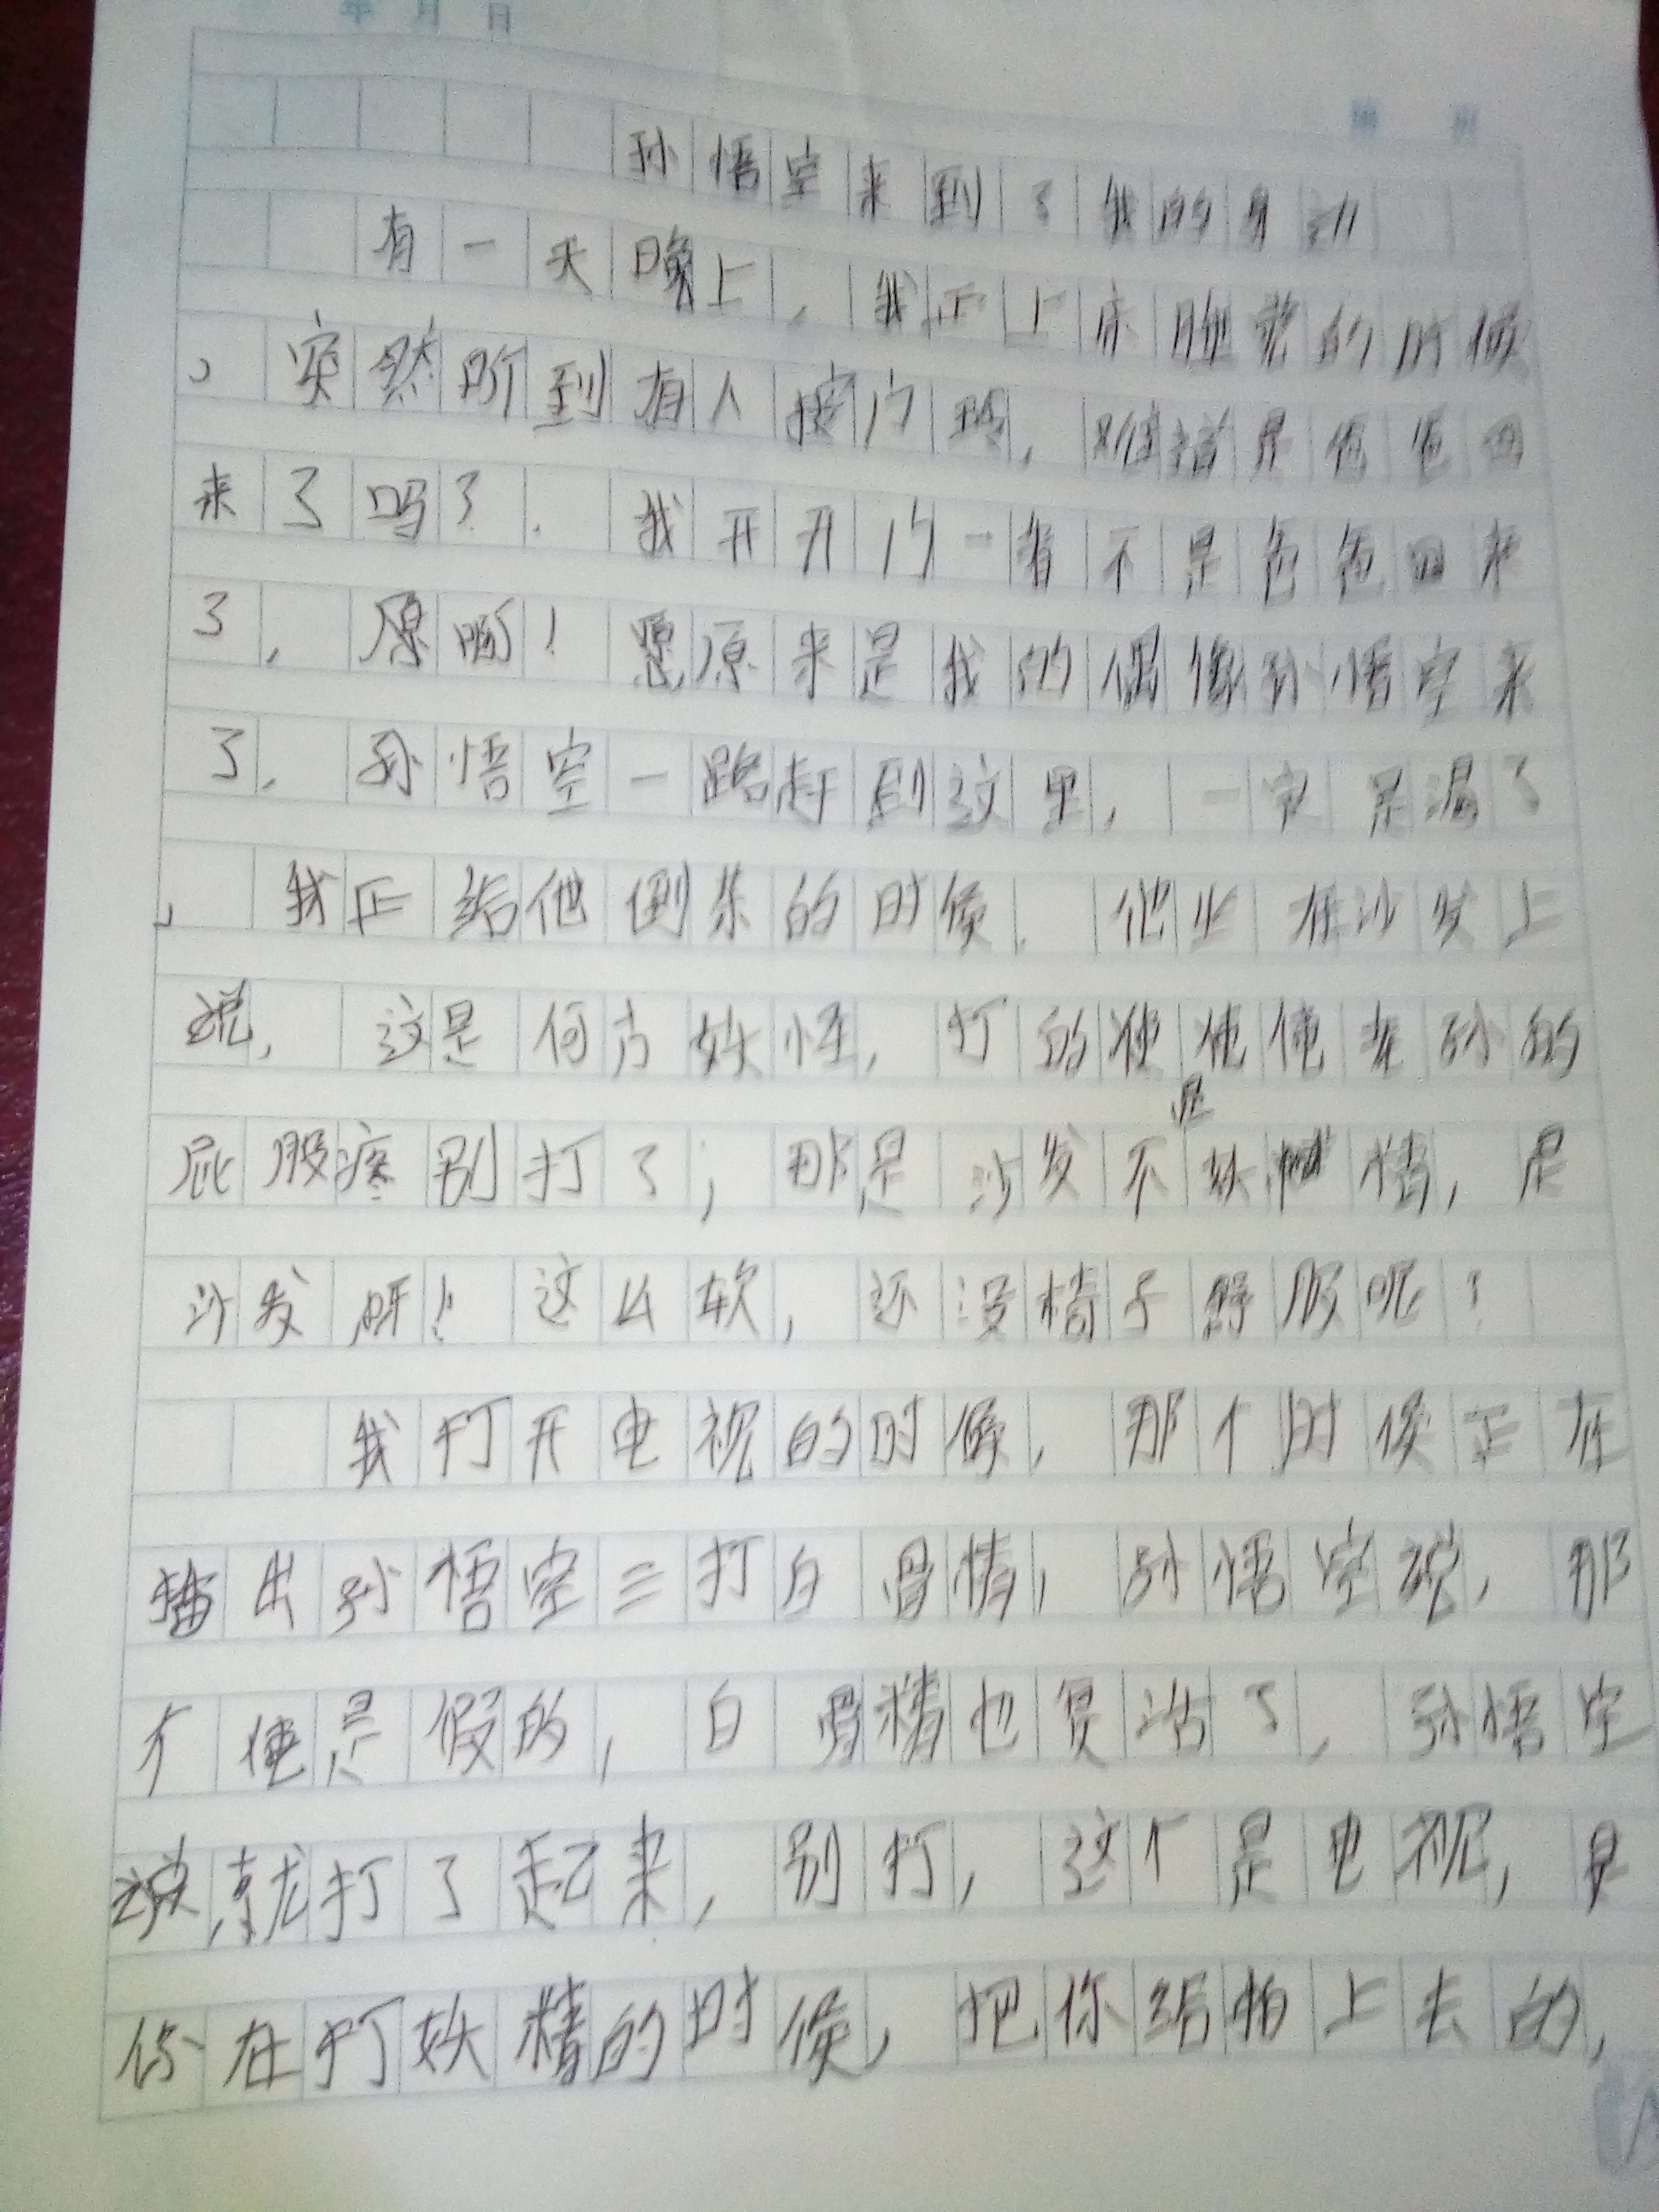 年 月 日
孙悟空来到了我的身边
有一天晚上,我正上床睡觉的时候
,突然听到有人按门铃,难道是爸爸回
来了吗?.我开开门一看不是爸爸回来
了,原啊!原来是我的偶像孙悟空来
了,孙悟空一路赶到这里,一定是渴了
,我正给他倒茶的时候.他坐在沙发上
说,这是何方妖怪,打的使使使老孙的
屁股疼别打了;那是沙发不是妖精,是
沙发呀!这么软,还没椅子舒服呢!
我打开电视的时候,那个时候正在
播出孙悟空三打白骨情,孙悟空说,那
个使是假的,白骨精也复活了,孙悟空
说就打了起来,别打,这个是电视,是
你在打妖精的时候,把你给拍上去的,